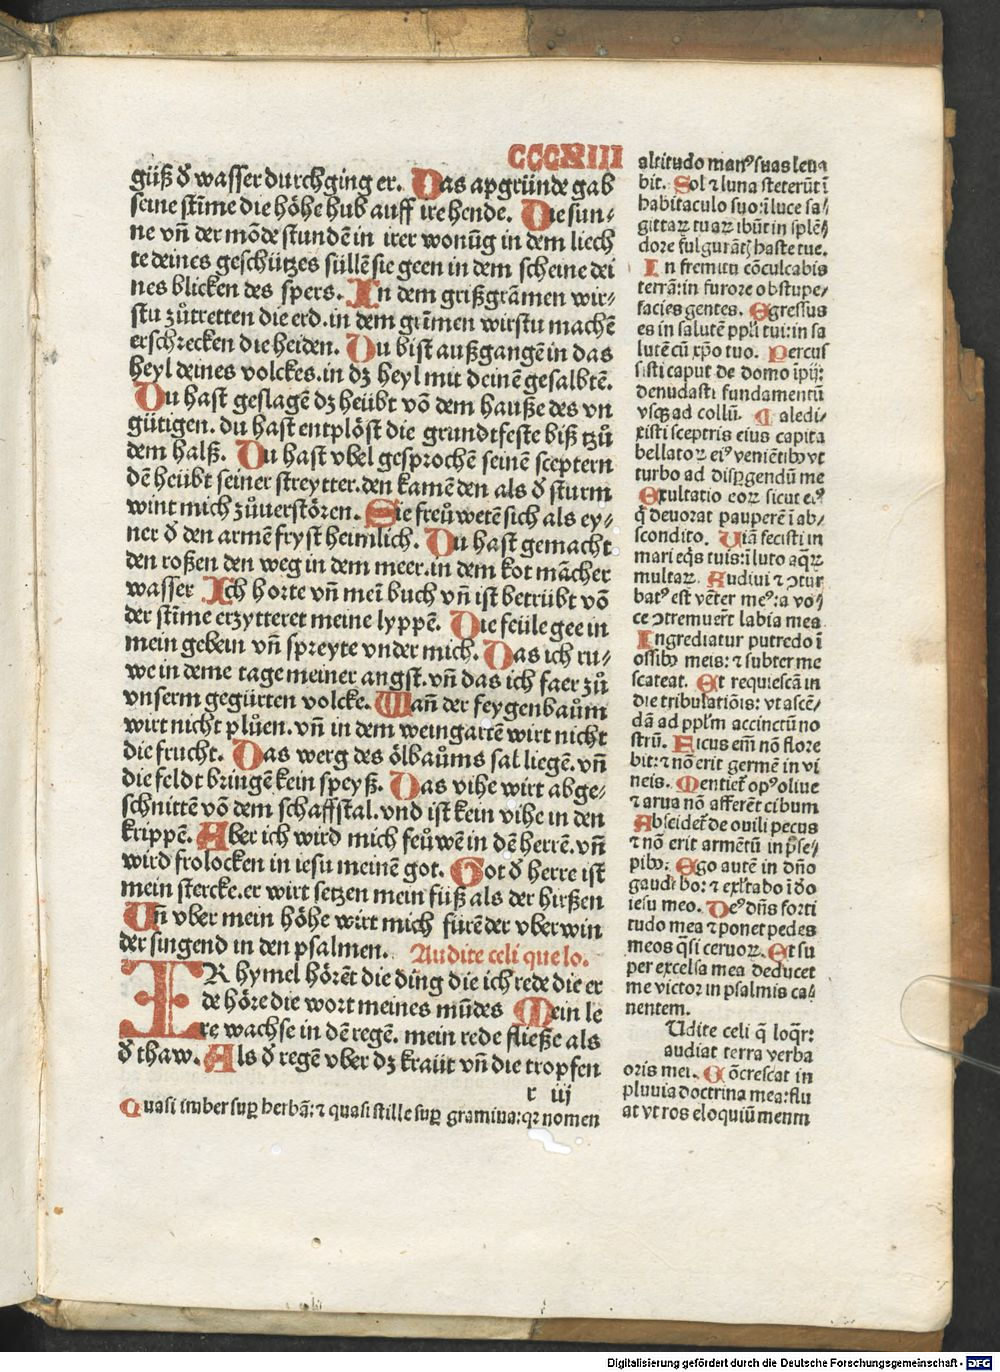 CCCXIII
güß đ wasser durchging er. Das apgründe gab
seine stim̄e die höhe hub auff ire hende. Die sun⸗
ne vn̄ der mōde stunden in irer wonūg in dem liech
te deines geschützes süllē sie geen in dem scheine dei
nes blicken des spers. In dem grißgrāmen wir⸗
stu zůtretten die erd. in dem grim̄en wirstu machē
erschrecken die heiden. Du bist außgangē in das
heyl deines volckes. in dz heyl mit deinē gesalbtē.
Du hast geslagē dz heübt vō dem hauße des vn
gütigen. du hast entplöst die grundtfeste biß tzů
dem halß. Du hast vbel gesprochē seinē sceptern
dē heübt seiner streytter. den kamē den als đ sturm
wint mich zůuerstören. Sie freůwetē sich als ey⸗
ner đ den armē fryst heimlich. Du hast gemacht
den roßen den weg in dem meer. in dem kot mācher
wasser Ich horte vn̄ mei buch vn̄ ist betrübt vō
der stim̄e erzytteret meine lyppē. Die feüle gee in
mein gebein vn̄ spreyte vnder mich. Das ich ru⸗
we in deme tage meiner angst. vn̄ das ich faer zů
vnserm gegürten volcke. Wan̄ der feygenbaům
wirt nicht plůen. vn̄ in dem weingartē wirt nicht
die frucht. Das werg des ölbaůms sal liegē. vn̄
die feldt bringē kein speyß. Das vihe wirt abge⸗
schnittē vō dem schaffstal. vnd ist kein vihe in den
krippē. Aber ich wird mich feůwē in dē herrē. vn̄
wird frolocken in iesu meinē got. Got đ herre ist
mein stercke. er wirt setzen mein füß als der hirßen
Vn̄ vber mein höhe wirt mich fürē der vberwin
der singend in den psalmen. Audite celi que lo.
IR hymel hörēt die ding die ich rede die er
de höre die wort meines mūdes Mein le
re wachse in dē regē. mein rede fließe als
đ thaw. Als đ regē vber dz kraüt vn̄ die tropfen
r iij
Quasi imber suꝑ herbā: ⁊ quasi stille suꝑ gramina: qꝛ nomen
altitudo manꝰ suas leua
bit. Sol ⁊ luna steterūt ī
habitaculo suo: ī luce sa⸗
gittaꝝ tuaꝝ ibūt in splē⸗
dore fulgurātꝭ haste tue.
In fremitu cōculcabis
terrā: in furore obstupe⸗
facies gentes. Egressus
es in salutē ppl̄i tui: in sa
lutē cū xp̄o tuo. Percus
sisti caput de domo īpij:
denudasti fundamentū
vsqꝫ ad collū. Maledi⸗
xisti sceptris eius capita
bellatoꝝ eiꝰ veniētibꝰ vt
turbo ad disꝑgendū me
Exultatio eoꝝ sicut eiꝰ
q̄ deuorat pauperē ī ab⸗
scondito. Viā fecisti in
mari eq̄s tuis: ī luto aq̄ꝝ
multaꝝ. Audiui ⁊ ꝯtur
batꝰ est vēter meꝰ: a vo⸗
ce ꝯtremuer̄t labia mea
Ingrediatur putredo ī
ossibꝰ meis: ⁊ subter me
scateat. Et requiescā in
die tribulatiōis: vt ascē⸗
dā ad ppl̄m accinctū no
strū. Ficus em̄ nō flore
bit: ⁊ nō erit germē in vi
neis. Mentiet̄ opꝰ oliue
⁊ arua nō afferēt cibum
Abscidet̄ de ouili pecus
⁊ nō erit armētū in p̄se⸗
pibꝰ. Ego autē in dn̄o
gaudebo: ⁊ exl̄tabo ī đo
iesu meo. Deꝰ dn̄s forti
tudo mea ⁊ ponet pedes
meos q̄si ceruoꝝ. Et su
per excelsa mea deducet
me victor in psalmis ca⸗
nentem.
Udite celi q̄ loq̄r:
audiat terra verba
oris mei. Cōcrescat in
pluuia doctrina mea: flu
at vt ros eloquiū meum
Digitalisierung gefördert durch die Deutsche Forschungsgemeinschaft - DFG